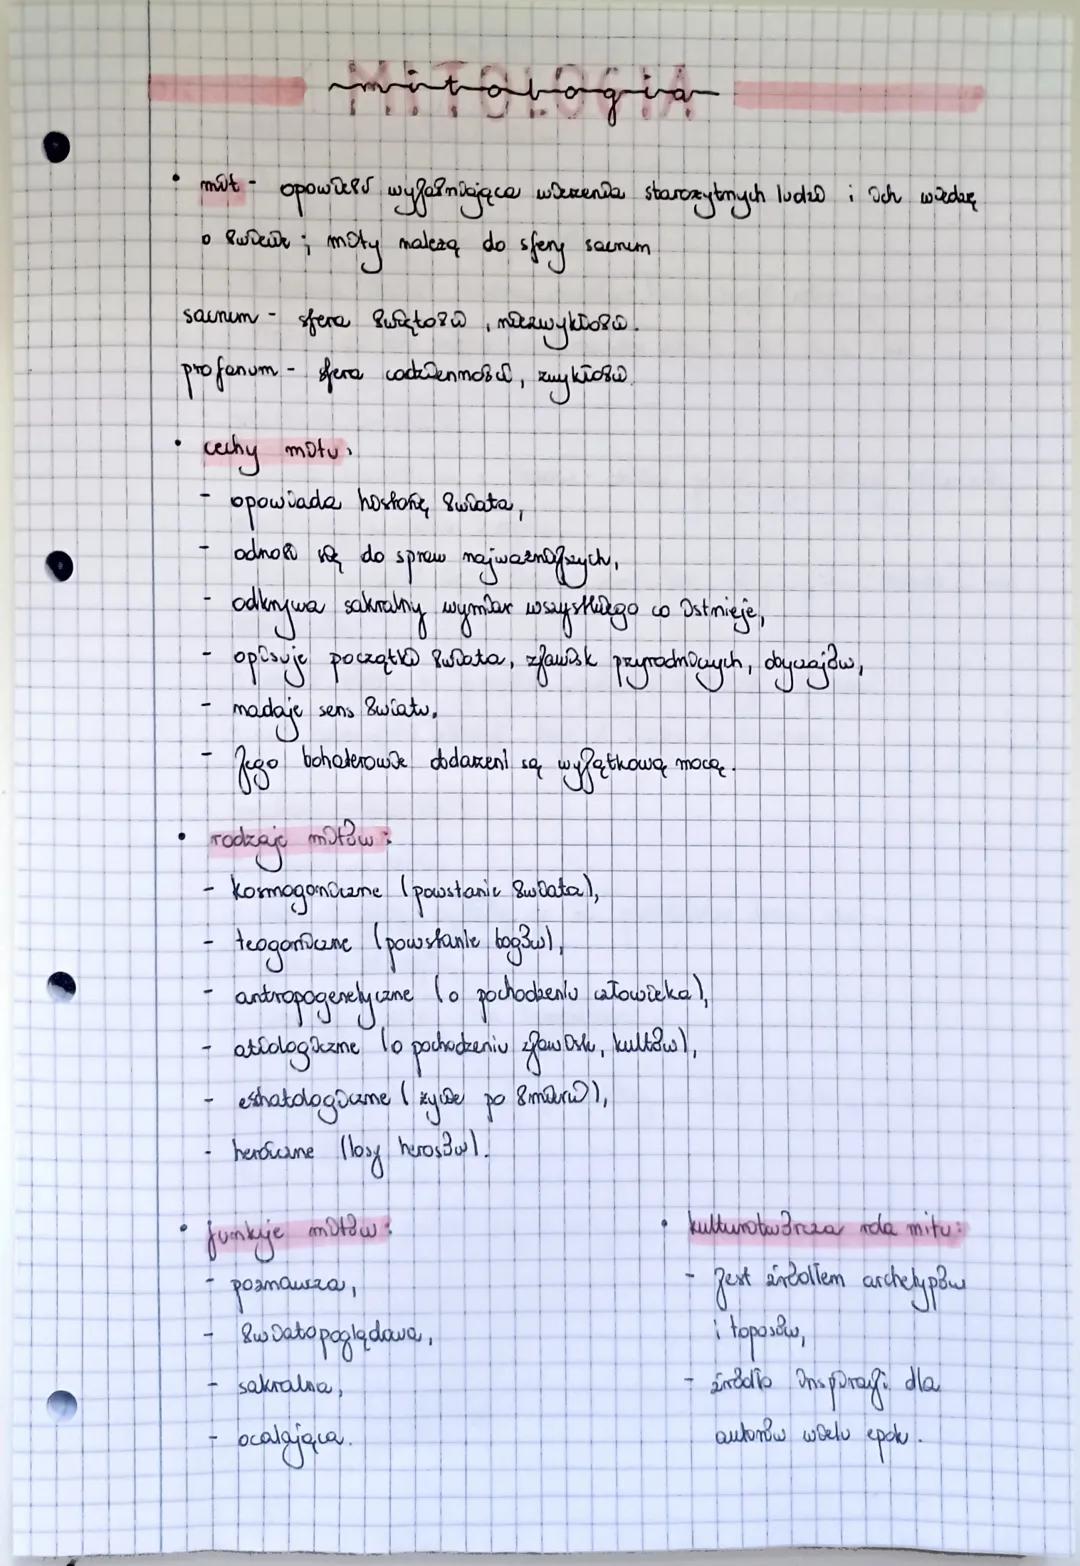 MITOLOGIA
mitologia
• mit - opowieść wyjaśniająca wierzenia starożytnych ludzi i ich wiedzę
o świecie ; mity należą do sfery sacrum
sacrum - sfera świętości, niezwykłości.
profanum - sfera codzienności, zwykłości.
• cechy mitu:
- opowiada historię świata,
- odnosi się do spraw najważniejszych,
- odkrywa sakralny wymiar wszystkiego co istnieje,
- opisuje początki świata, zjawisk przyrodniczych, obyczajów,
- nadaje sens światu,
- jego bohaterowie obdarzeni są wyjątkową mocą.
• rodzaje mitów:
- kosmogoniczne (powstanie świata),
- teogoniczne (powstanie bogów),
- antropogenetyczne (o pochodzeniu człowieka),
- atiologiczne (o pochodzeniu zjawisk, kultów),
- eshatologiczne (życie po śmierci),
- heroiczne (losy herosów).
• funkcje mitów:
- poznawcza,
- światopoglądowa,
- sakralna,
- ocalająca.
• kulturotwórcza rola mitu:
- jest źródłem archetypów
i toposów,
- źródło inspiracji dla
autorów wielu epok.